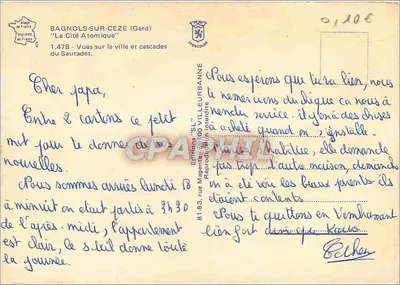 BAGNOLS-SUR-CEZE (Gard)
"La Cité Atomique"
1.478 - Vues sur la ville et cascades
du Sautadet.
0,10€
Cher papa,
Entre 2 cartons ce petit
mot pour te donner de
nouvelles.
Nous sommes arrivés lundi 13
à minuit on etait partis à 3h30
de l'après-midi, l'appartement
est clair, le soleil donne toute
la journée.
Editions "SL"
81-83, rue Magenta 69100 VILLEURBANNE
Reproduction interdite
CPARAMA.COM
Nous esperons que tu va bien, nous
te remercions du chèque ca nous à
rendu service. il y à des choses
à acheté quand on s'installe.
s'habitue, elle demande
pas trop l'autre maison, demande
on à été voir les beaux parents ils
étaient contents.
Nous te quittons en t'embrassant
bien fort ainsi que